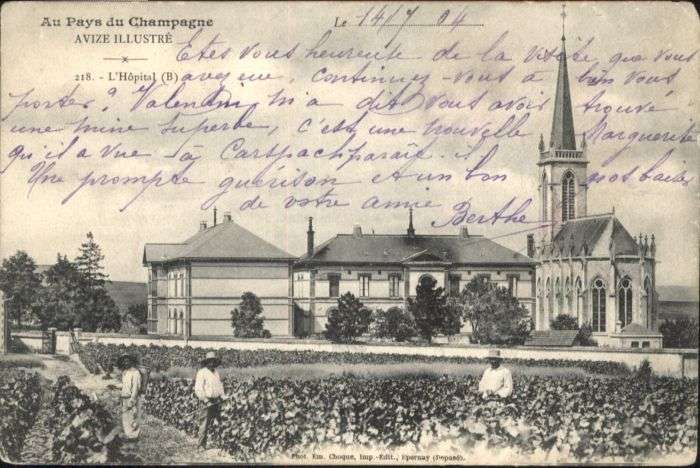 Au Pays du Champagne
AVIZE ILLUSTRÉ
218. - L'Hôpital (B)
Le 14/7 04
Etes vous heureuse de la visite que vous
avez eue, continuez-vous à bien vous
porter? Valentin m'a dit vous avoir trouvé
une mine superbe, c'est une nouvelle Marguerite
qu'il a vue à
Une prompte guérison et un bon
de votre amie Berthe
Phot. Em. Choque, Imp.-Edit., Epernay (Déposé).